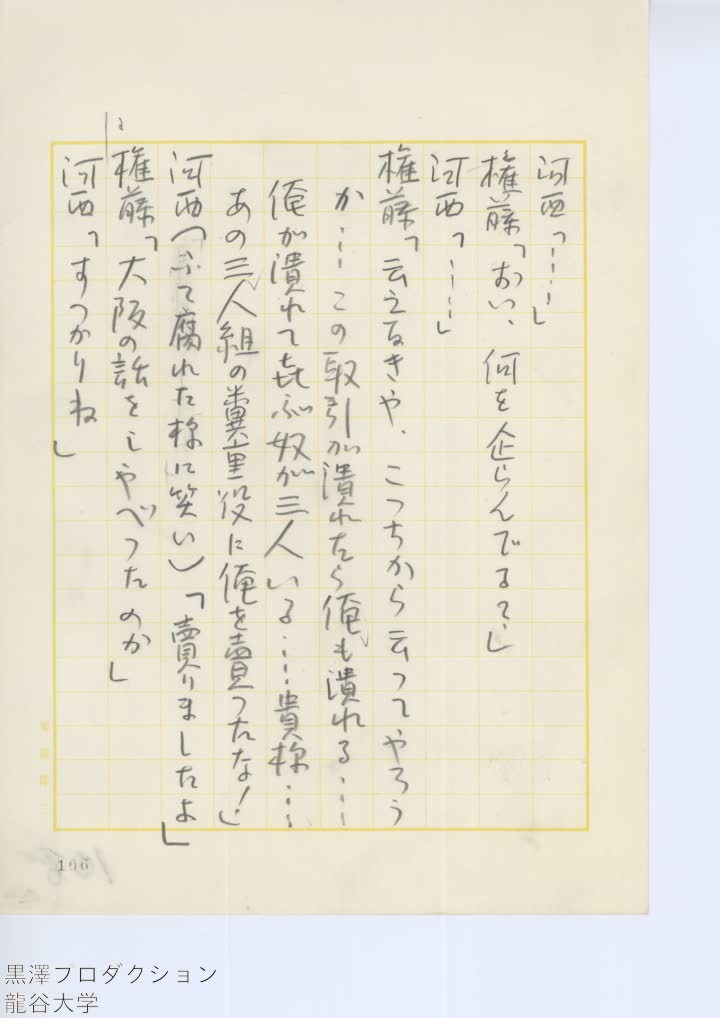 河西「……」
権藤「おい、何を企らんでる？」
河西「……」
権藤「云えなきや、こつちから云つてやろう
か……この取引が潰れたら俺も潰れる……
俺が潰れて㐂ぶ奴が三人いる……貴様……
あの三人組の糞重役に俺を賣つたな！」
河西（ふて腐れた様に笑い）「賣りましたよ」
権藤「大阪の話をしやべつたのか」
河西「すつかりね」
106
黒澤プロダクション
龍谷大学